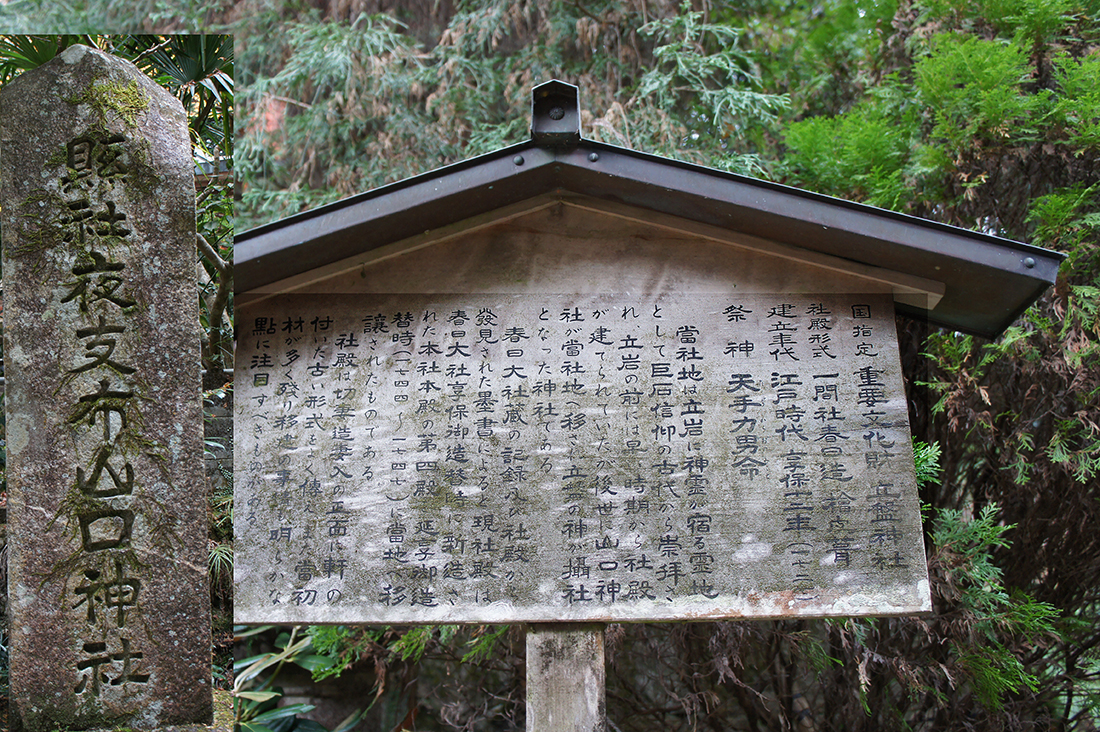 縣社夜支布山口神社
国指定 重要文化財 立盤神社
社殿形式 一間社春日造 桧皮葺
建立年代 江戸時代 享保十二年(一七二
祭神 天手力男命
當社地は立岩に神霊が宿る霊地
として巨石信仰の古代から崇拝さ
れ、立岩の前には早い時期から社殿
が建てられていたが後世に山口神
社が當社地へ移され立岩の神が攝社
となった神社である
春日大社蔵の記録及び社殿から
發見された墨書によると現社殿は
春日大社享保御造替に新造さ
れた本社本殿の第四殿を延享御造
替時(一七四四〜一七四七)に當地へ移
讓されたものである
社殿は切妻造妻入の正面に軒の
付いた古い形式をよく傳えまた當初
材が多く殘り移建の事情も明らかな
點に注目すべきものがある。